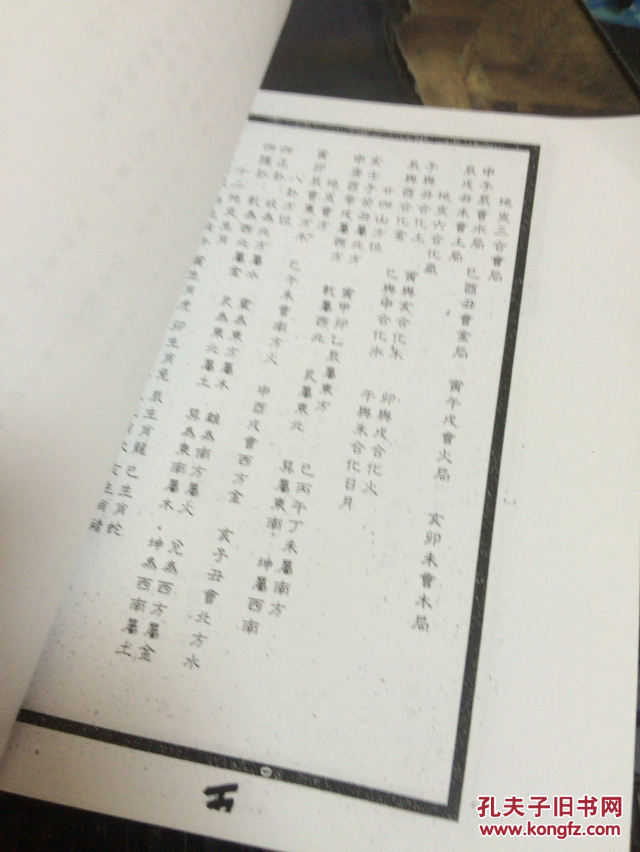 地支三合會局
申子辰會水局 巳酉丑會金局 寅午戌會火局 亥卯未會木局
辰戌丑未會土局
地支六合化氣
子與丑合化土 寅與亥合化木 卯與戌合化火
辰與酉合化金 巳與申合化水 午與未合化日月
廿四山方位
亥壬子癸丑屬北方 寅甲卯乙辰屬東方 巳丙午丁未屬南方
申庚酉辛戌屬西方 乾屬西北 艮屬東北 巽屬東南 坤屬西南
地支會方
寅卯辰會東方木 巳午未會南方火 申酉戌會西方金 亥子丑會北方水
八卦方位
四正卦：坎為北方屬水 震為東方屬木 離為南方屬火 兌為西方屬金
四隅卦：乾為西北屬金 艮為東北屬土 巽為東南屬木 坤為西南屬土
十二地支生肖
寅生肖虎 卯生肖兔 辰生肖龍 巳生肖蛇
亥生肖豬
孔夫子旧书网
www.kongfz.com